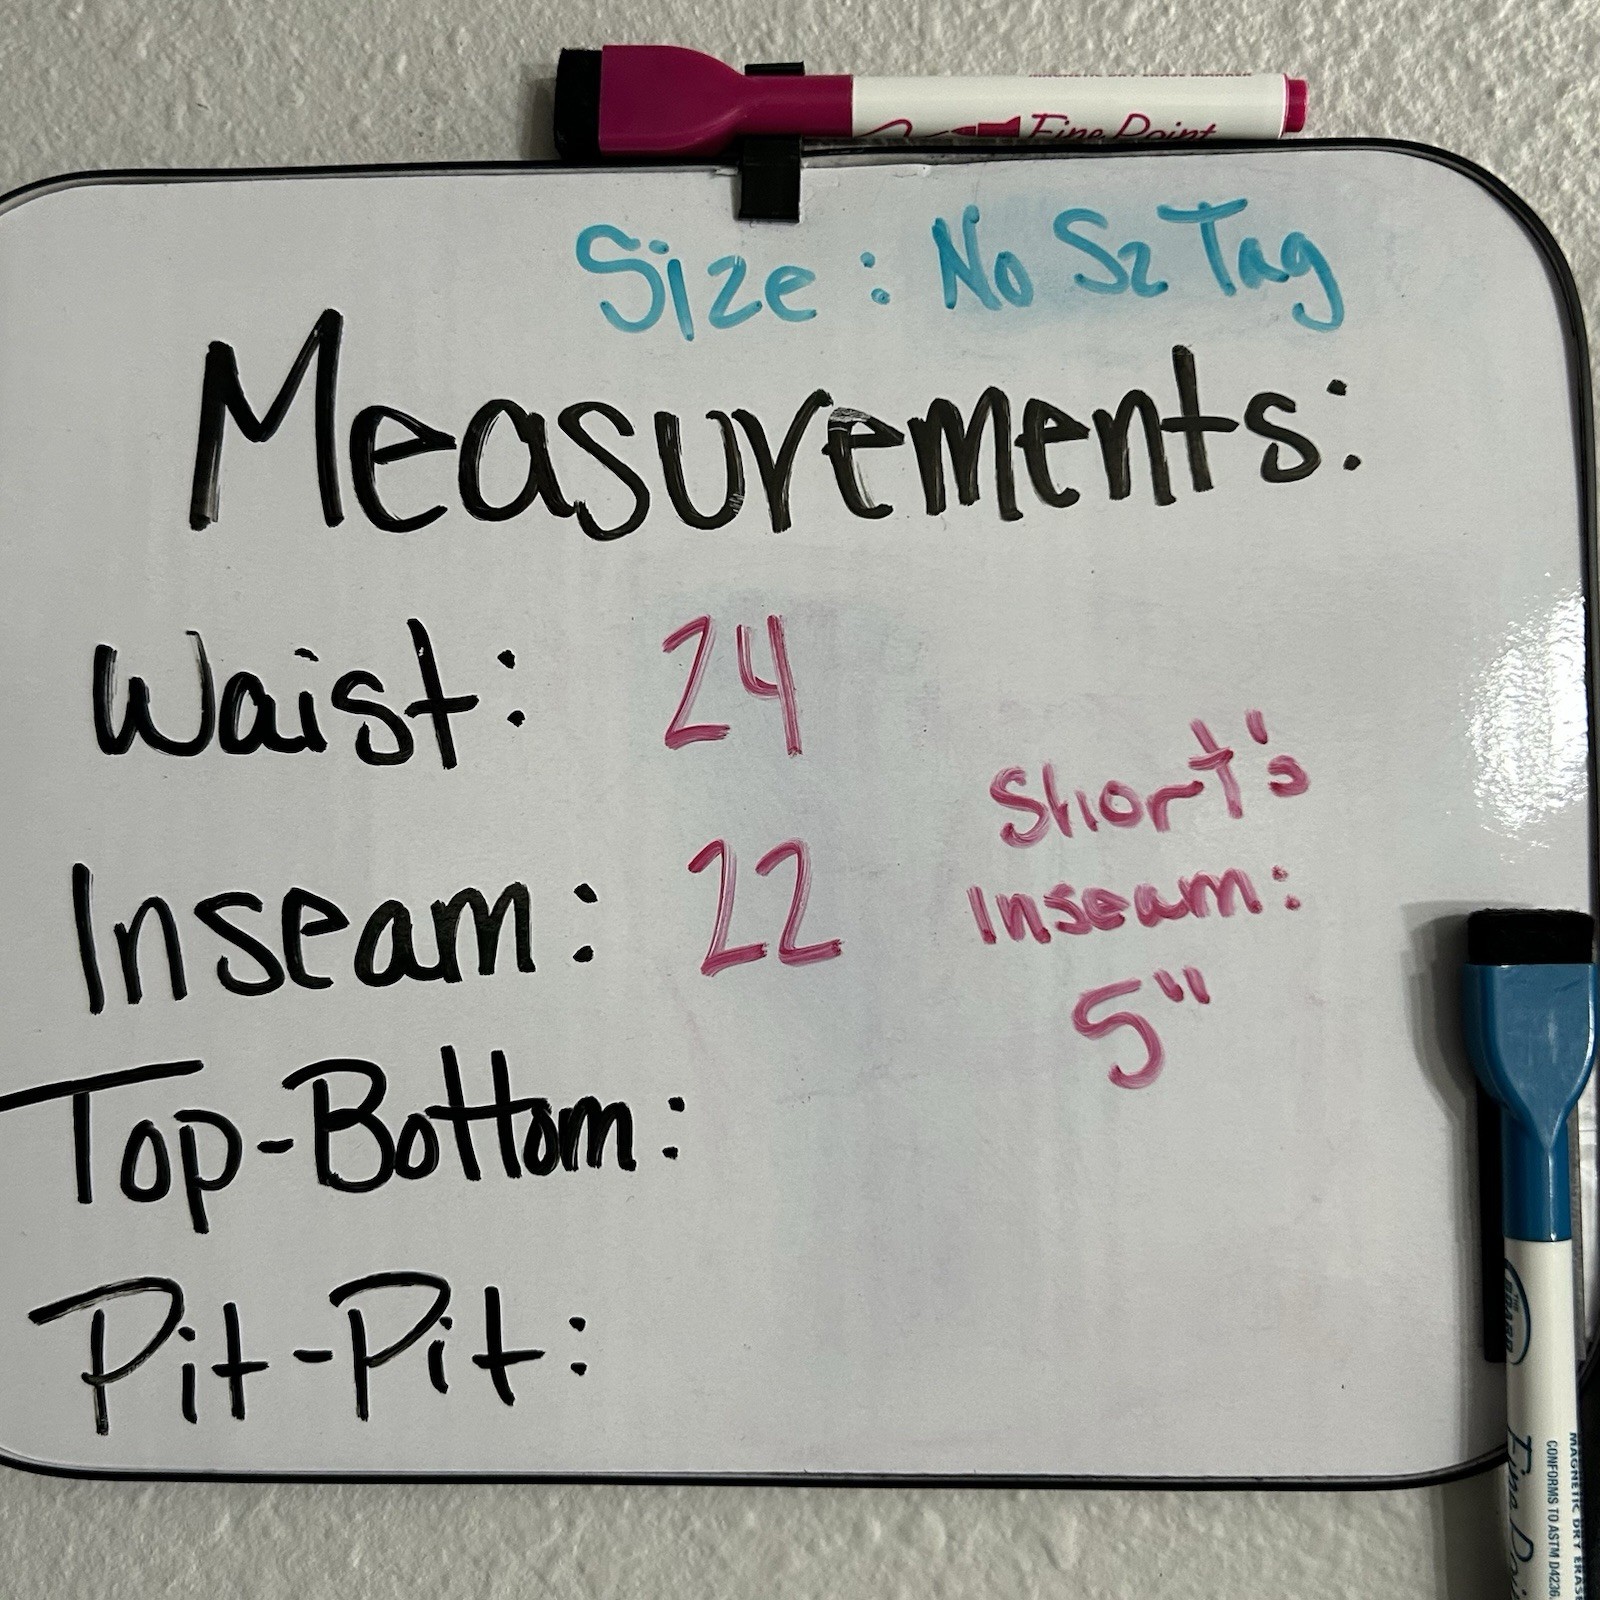 Fine Point
Size: No Sz Tag
Measurements:
Waist: 24
Short's
Inseam: 22
Inseam:
5"
Top-Bottom:
Pit-Pit:
MAGNETIC DRY ERASE
CONFORMS TO ASTM D4236.